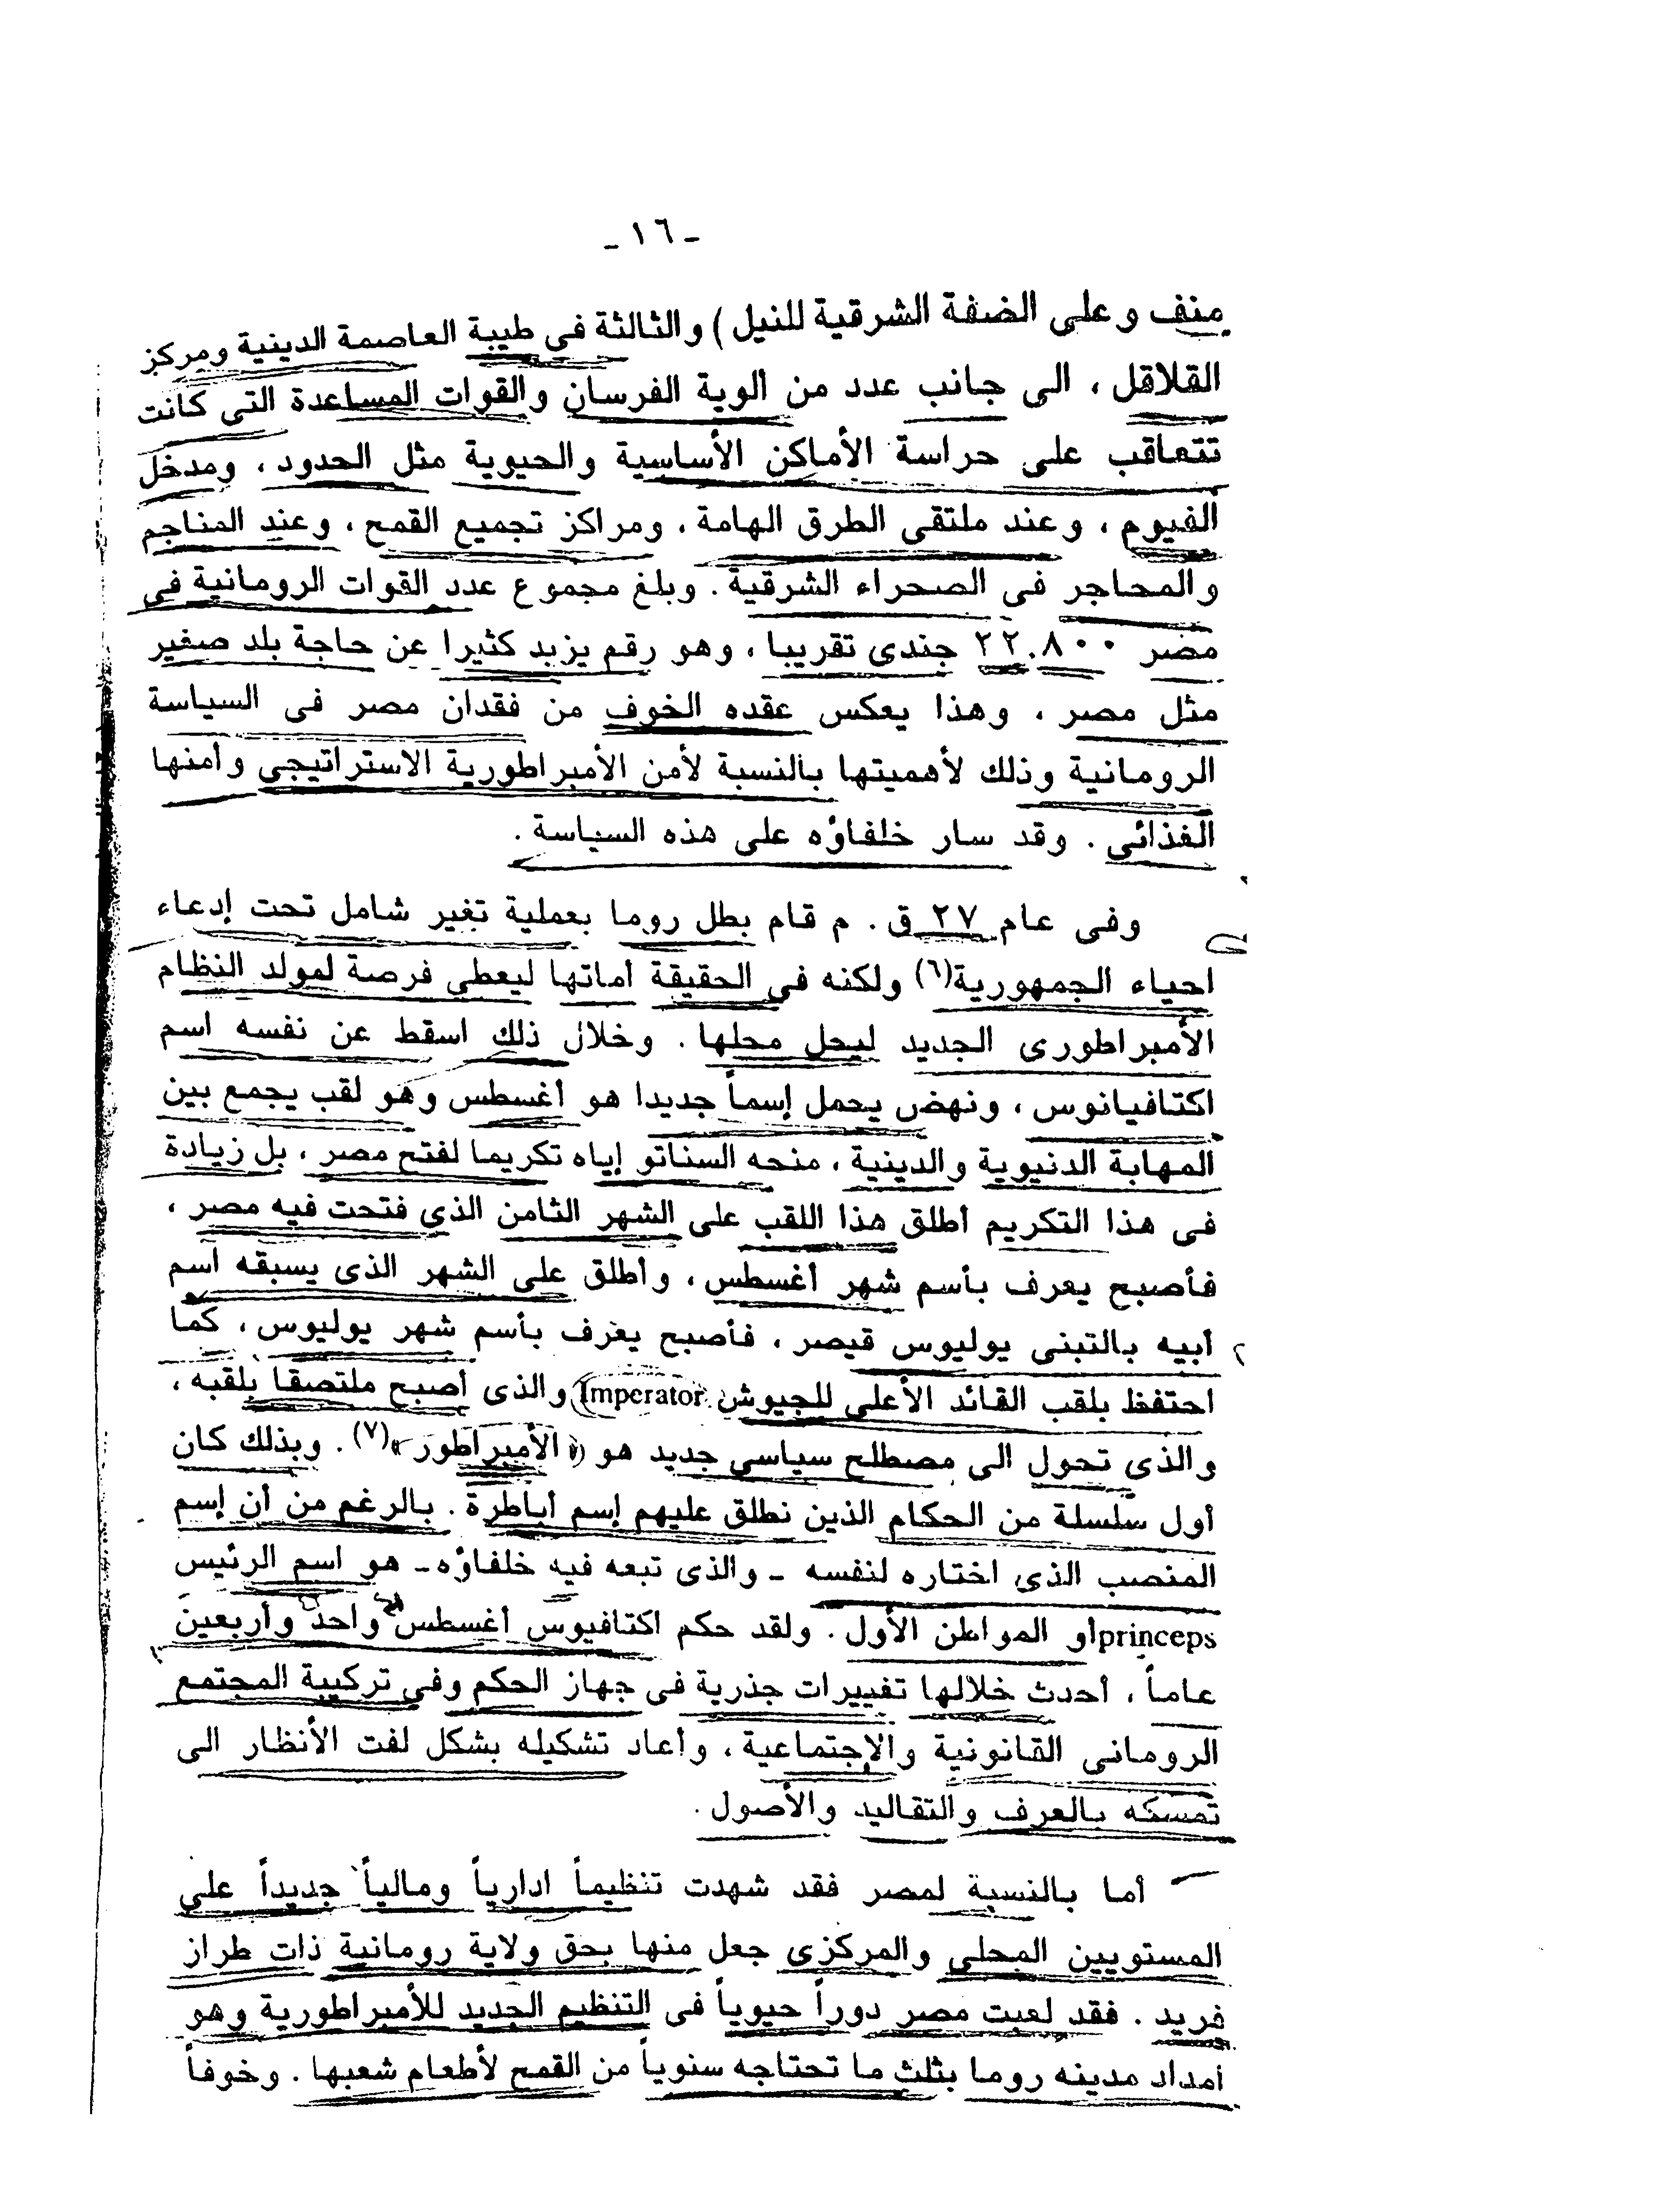 - ١٦ -
منف وعلى الضفة الشرقية للنيل) والثالثة في طيبة العاصمة الدينية ومركز
القلاقل ، الى جانب عدد من ألوية الفرسان والقوات المساعدة التى كانت
تتعاقب على حراسة الأماكن الأساسية والحيوية مثل الحدود ، ومدخل
الفيوم ، وعند ملتقى الطرق الهامة ، ومراكز تجميع القمح ، وعند المناجم
والمحاجر فى الصحراء الشرقية . وبلغ مجموع عدد القوات الرومانية فى
مصر ٢٢.٨٠٠ جندى تقريبا ، وهو رقم يزيد كثيرا عن حاجة بلد صغير
مثل مصر ، وهذا يعكس عقده الخوف من فقدان مصر فى السياسة
الرومانية وذلك لأهميتها بالنسبة لأمن الأمبراطورية الاستراتيجى وأمنها
الغذائى . وقد سار خلفاؤه على هذه السياسة .
وفى عام ٢٧ ق . م قام بطل روما بعملية تغير شامل تحت إدعاء
احياء الجمهورية(٦) ولكنه فى الحقيقة أماتها ليعطى فرصة لمولد النظام
الأمبراطورى الجديد ليحل محلها . وخلال ذلك اسقط عن نفسه اسم
اكتافيانوس ، ونهض يحمل إسماً جديدا هو أغسطس وهو لقب يجمع بين
المهابة الدنيوية والدينية ، منحه السناتو إياه تكريما لفتح مصر ، بل زيادة
فى هذا التكريم أطلق هذا اللقب على الشهر الثامن الذى فتحت فيه مصر ،
فأصبح يعرف بأسم شهر أغسطس ، وأطلق على الشهر الذى يسبقه اسم
أبيه بالتبنى يوليوس قيصر ، فأصبح يعرف بأسم شهر يوليوس ، كما
احتفظ بلقب القائد الأعلى للجيوش Imperator والذى أصبح ملتصقا بلقبه ،
والذى تحول الى مصطلح سياسى جديد هو «الأمبراطور»(٧) . وبذلك كان
أول سلسلة من الحكام الذين نطلق عليهم إسم أباطرة . بالرغم من أن إسم
المنصب الذى اختاره لنفسه - والذى تبعه فيه خلفاؤه - هو اسم الرئيس
princeps أو المواطن الأول . ولقد حكم اكتافيوس أغسطس واحد وأربعين
عاماً ، أحدث خلالها تغييرات جذرية فى جهاز الحكم وفى تركيبة المجتمع
الرومانى القانونية والإجتماعية ، وأعاد تشكيله بشكل لفت الأنظار الى
تمسكه بالعرف والتقاليد والأصول .
أما بالنسبة لمصر فقد شهدت تنظيماً ادارياً ومالياً جديداً على
المستويين المحلى والمركزى جعل منها بحق ولاية رومانية ذات طراز
فريد . فقد لعبت مصر دوراً حيوياً فى التنظيم الجديد للأمبراطورية وهو
أمداد مدينه روما بثلث ما تحتاجه سنوياً من القمح لأطعام شعبها . وخوفاً